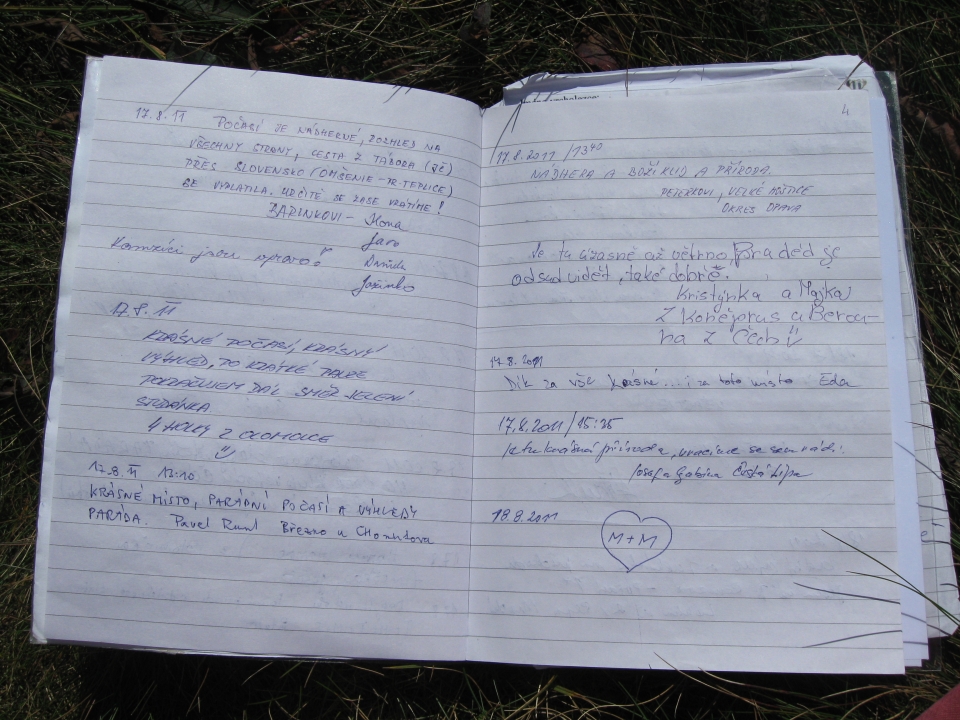 17.8.11 POČASÍ JE NÁDHERNÉ, ROZHLED NA
VŠECHNY STRANY, CESTA Z TÁBORA (JČ)
PŘES SLOVENSKO (OMŠENIE-TR. TEPLICE)
SE VYPLATILA. URČITĚ SE ZASE VRÁTÍME!
BAŘINKOVI - Ilona
Jaro
Daniela
Kamzíci jsou vpravo!
17.8.11
KRÁSNÉ POČASÍ, KRÁSNÝ
VÝHLED, PO KRÁTKÉ PAUZE
POKRAČUJEM DÁL SMĚR JELENÍ
STUDÁNKA
4 HOLKY Z OLOMOUCE
17.8.11 13:10
KRÁSNÉ MÍSTO, PARÁDNÍ POČASÍ A VÝHLEDY
PARÁDA. Pavel Březno u Chomutova
4
17.8.2011 /13⁴⁰
NÁDHERA A BOŽÍ KLID A PŘÍRODA.
PETERKOVI, VELKÉ HOŠTICE
OKRES OPAVA
Je tu úžasně až větrno, Praděd je
odsud vidět, také dobrěš.
Kristýnka a Majka
Z Koněprus a Berou-
na z Čech!!
17.8.2011
Dík za vše krásné...i za toto místo Eda
17.8.2011/15:35
Je tu krásná příroda, vracíme se sem rádi.
Josef a Gabina Česká Lípa
18.8.2011
M+M